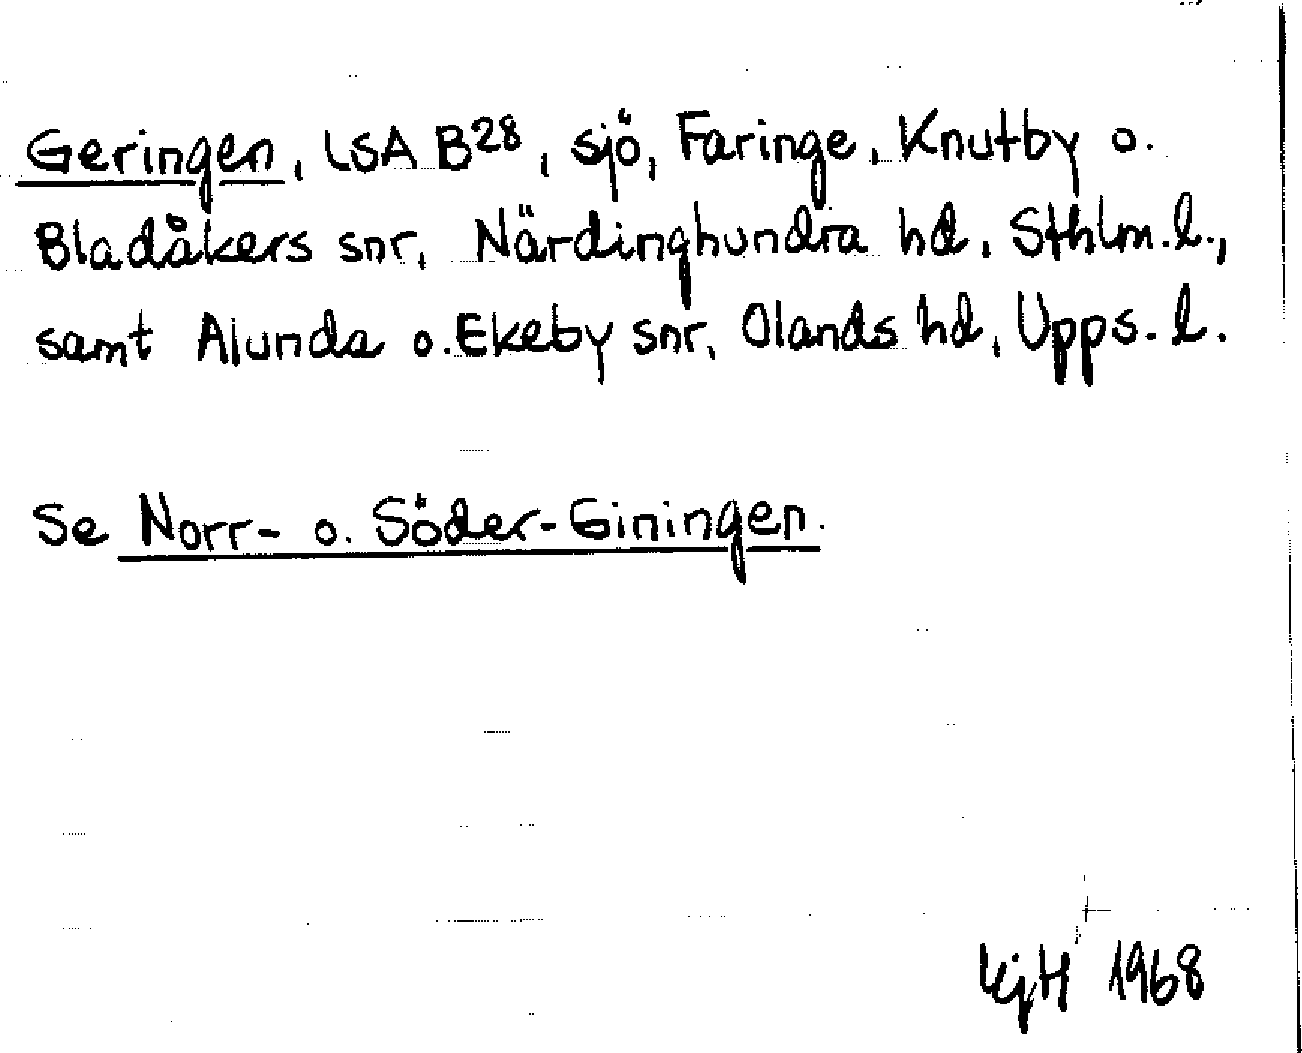 Geringen, LSA B28, sjö, Faringe, Knutby o.
Bladåkers snr, Närdinghundra hd, Sthlm.l.,
samt Alunda o. Ekeby snr, Olands hd, Upps. l.
Se Norr- o. Söder-Giningen.
1968